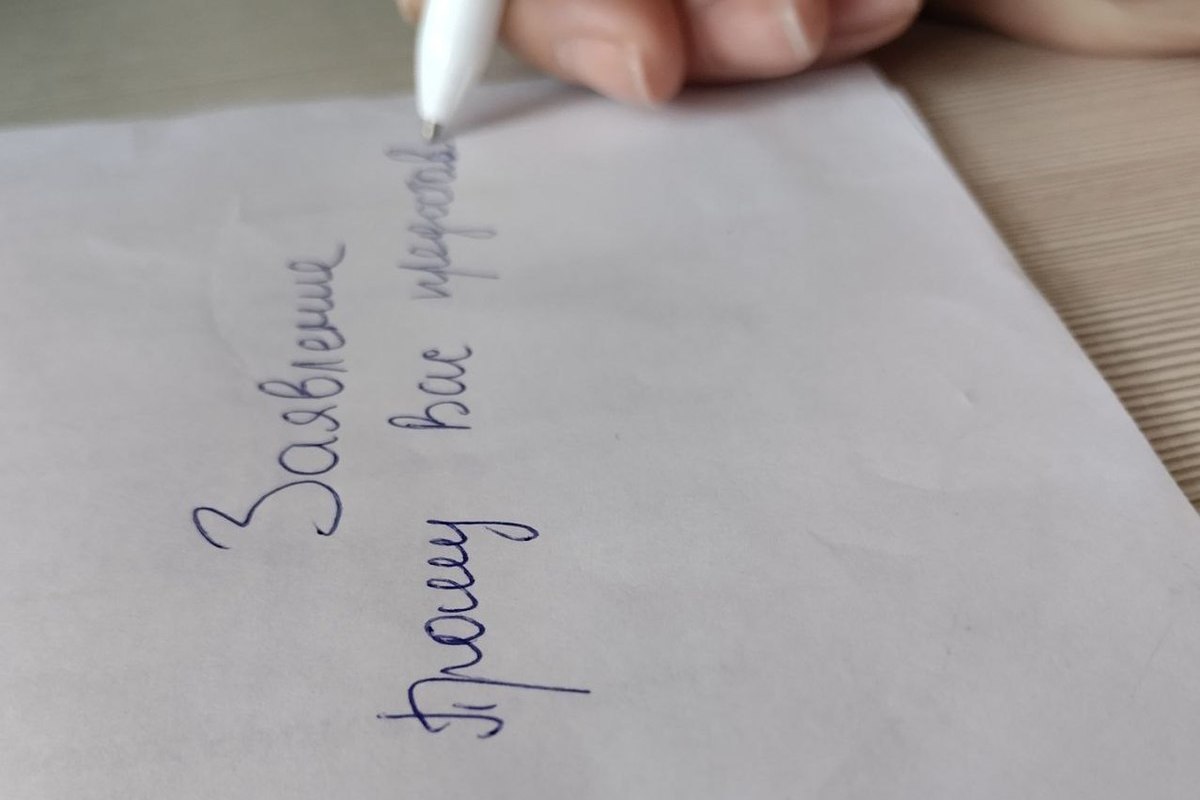 Заявление
Прошу Вас предостав